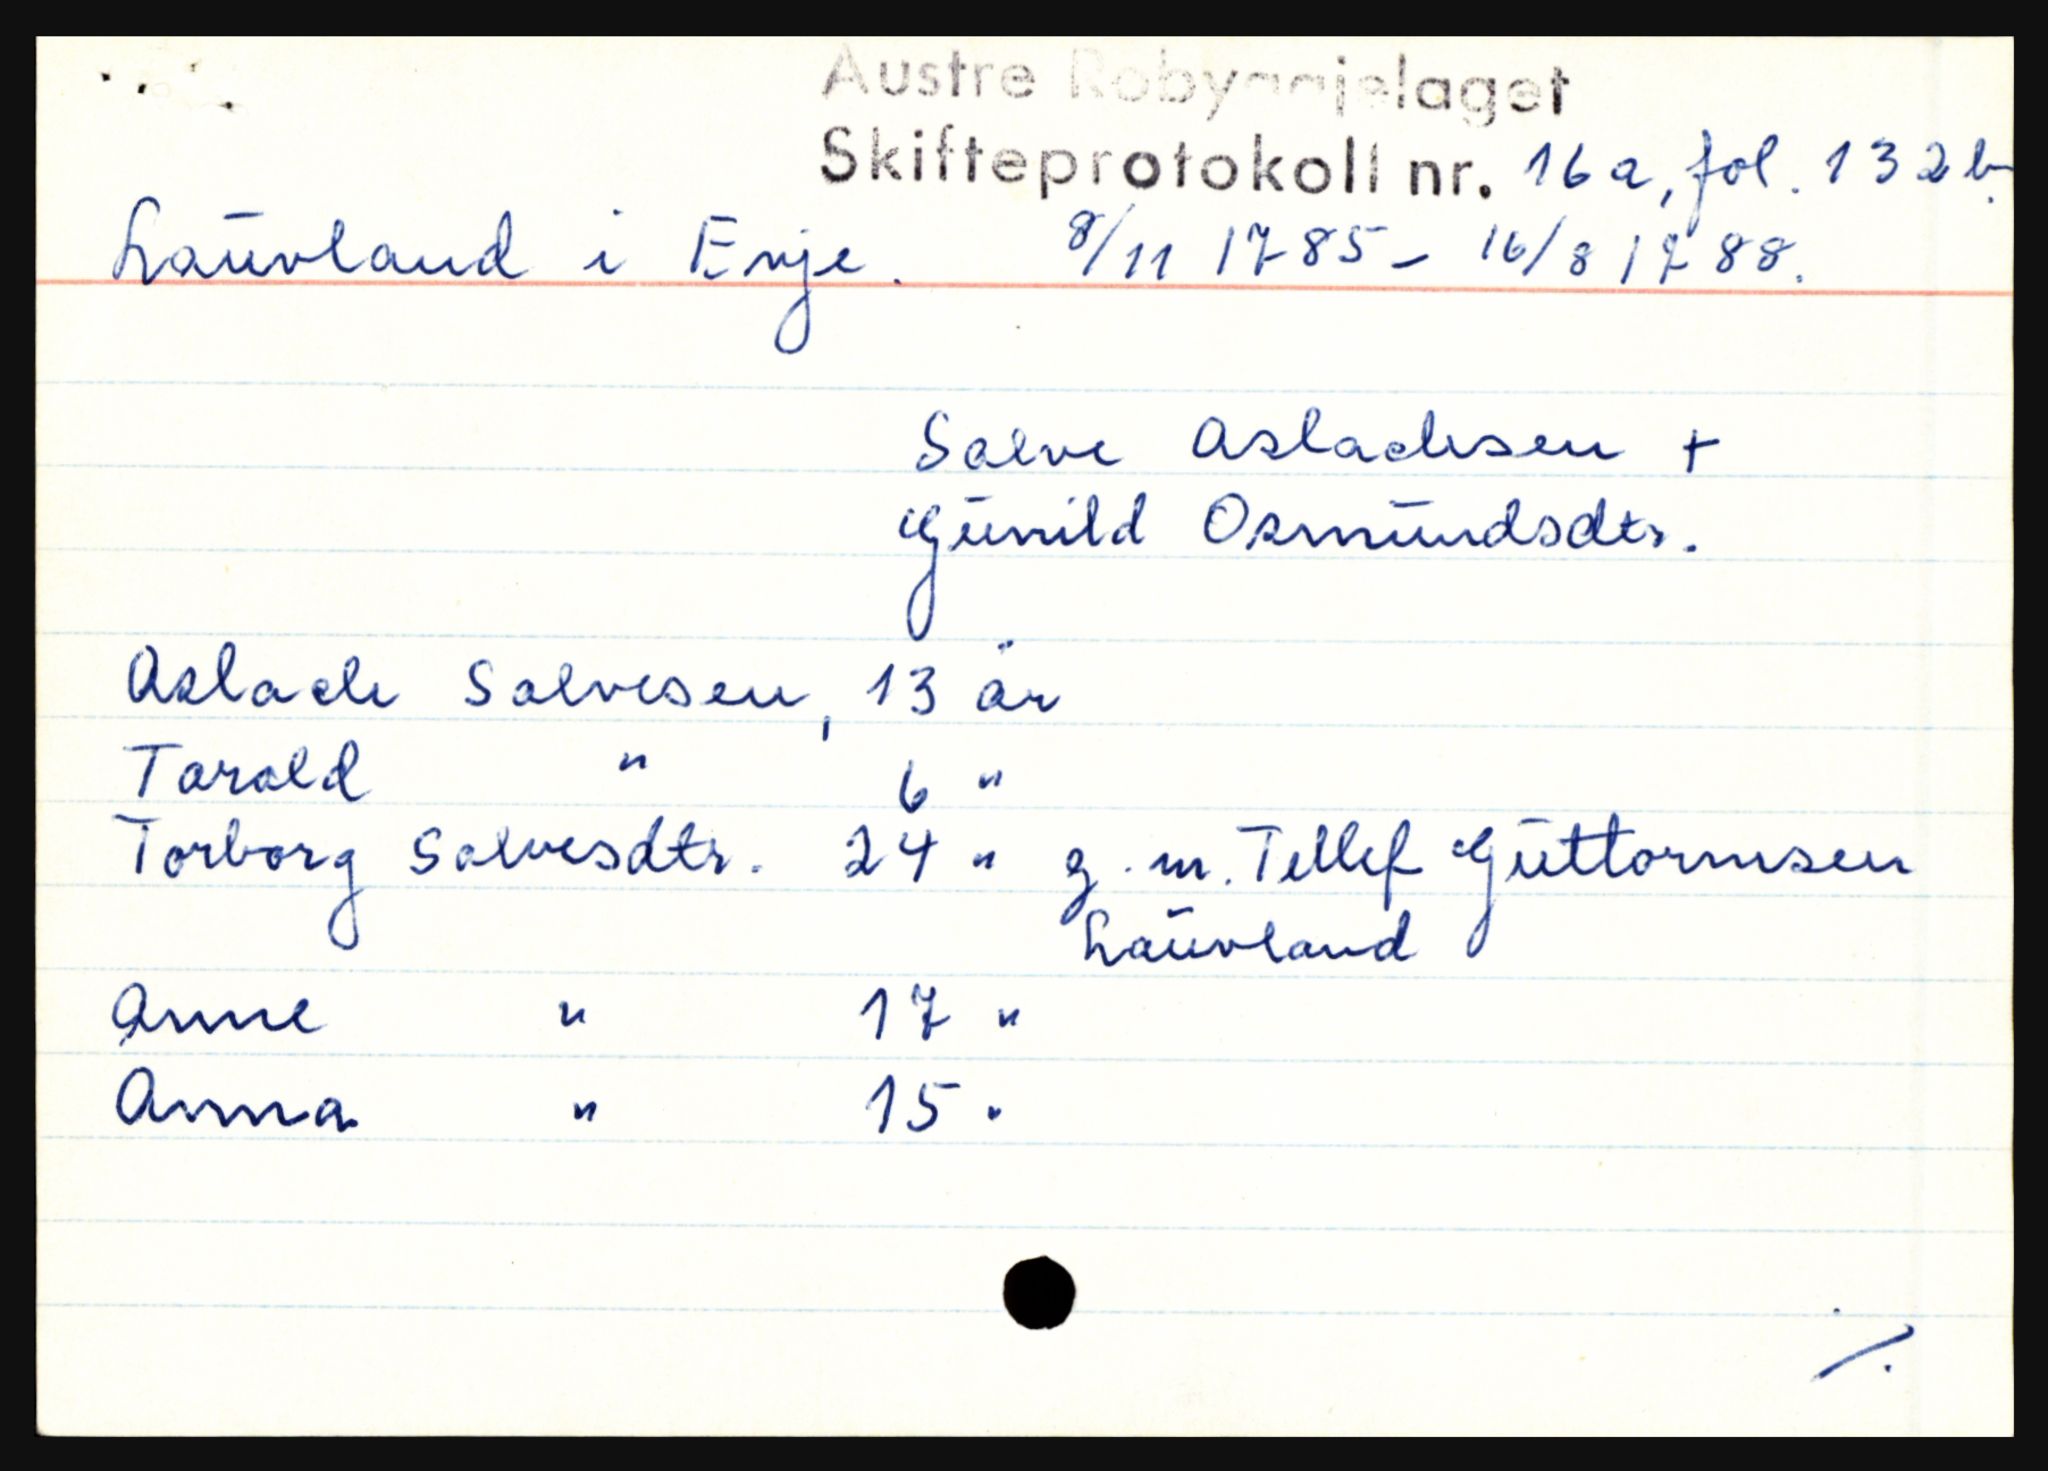 Austre Robyggjelaget
Skifteprotokoll nr. 16a, fol. 132b.
Lauvland i Evje. 8/11 1785 - 16/8 1788.
Salve Aslachsen +
Gunild Osmundsdtr.
Aslach Salvesen, 13 år
Tarald " 6 "
Torborg Salvesdtr. 24 " g. m. Tellef Guttormsen
Lauvland
Anne " 17 "
Anna " 15 "
./.